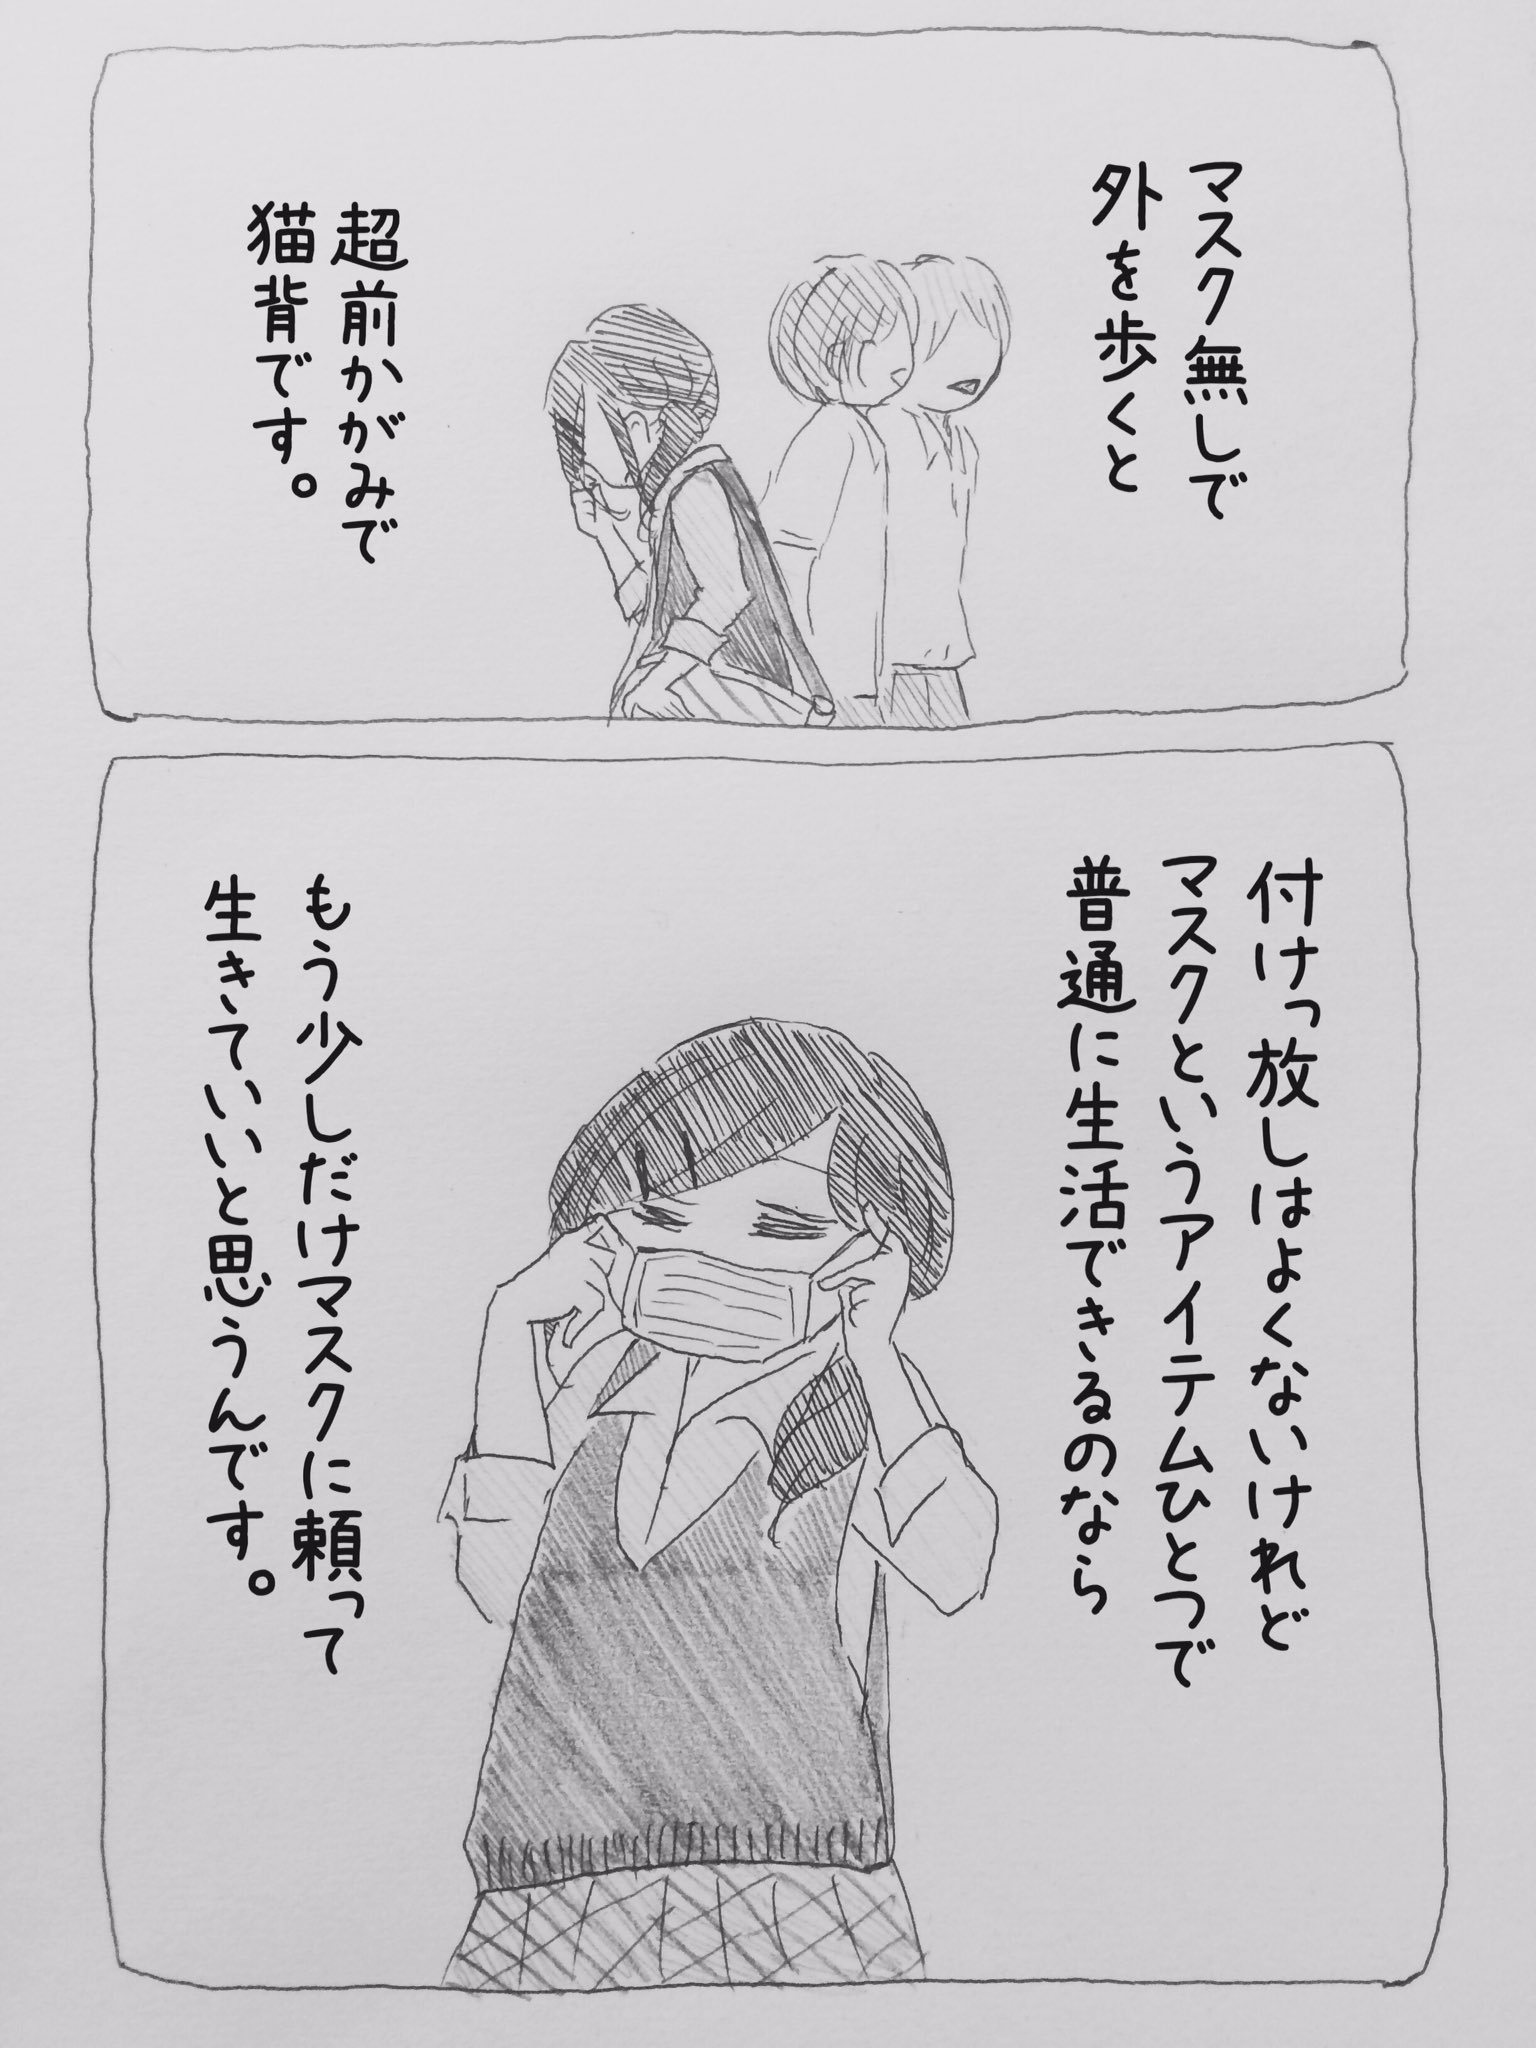 マスク無しで
外を歩くと
超前かがみで
猫背です。
付けっ放しはよくないけれど
マスクというアイテムひとつで
普通に生活できるのなら
もう少しだけマスクに頼って
生きていいと思うんです。